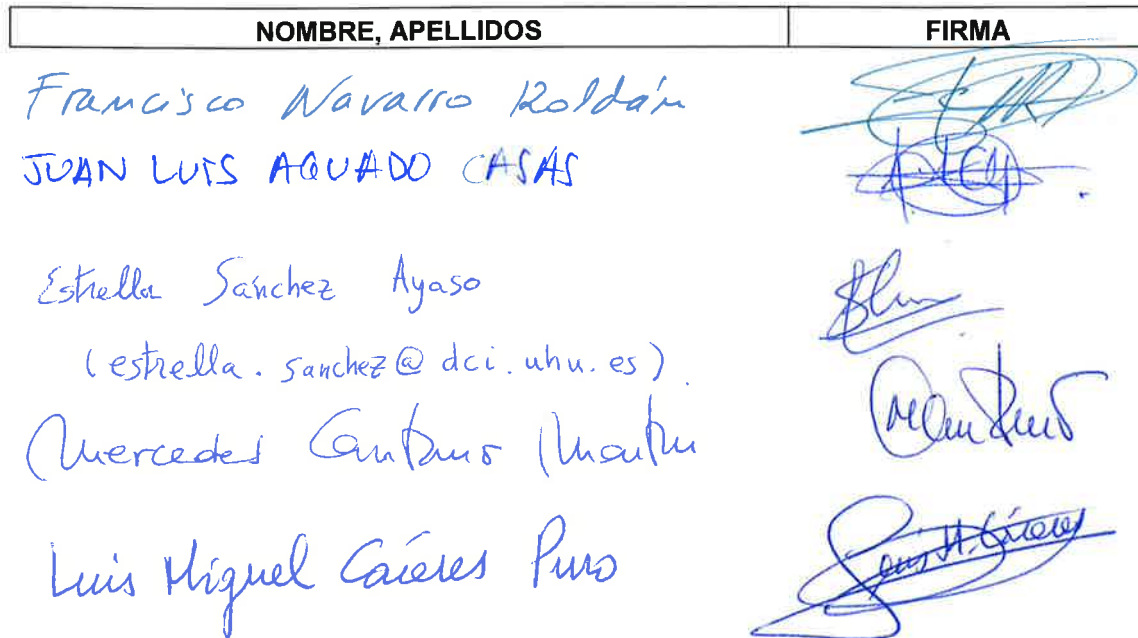 NOMBRE, APELLIDOS FIRMA
Francisco Navarro Roldán
JUAN LUIS AGUADO CASAS
Estrella Sánchez Ayaso
(estrella.sanchez@dci.uhu.es)
Mercedes Martín
Luis Miguel Cáceres Puro
Luis M. Cáceres